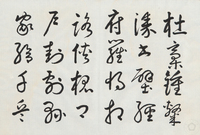 杜稾鍾隸
漆書壁經
府羅將相
路俠槐卿
戶封八縣
家給千兵